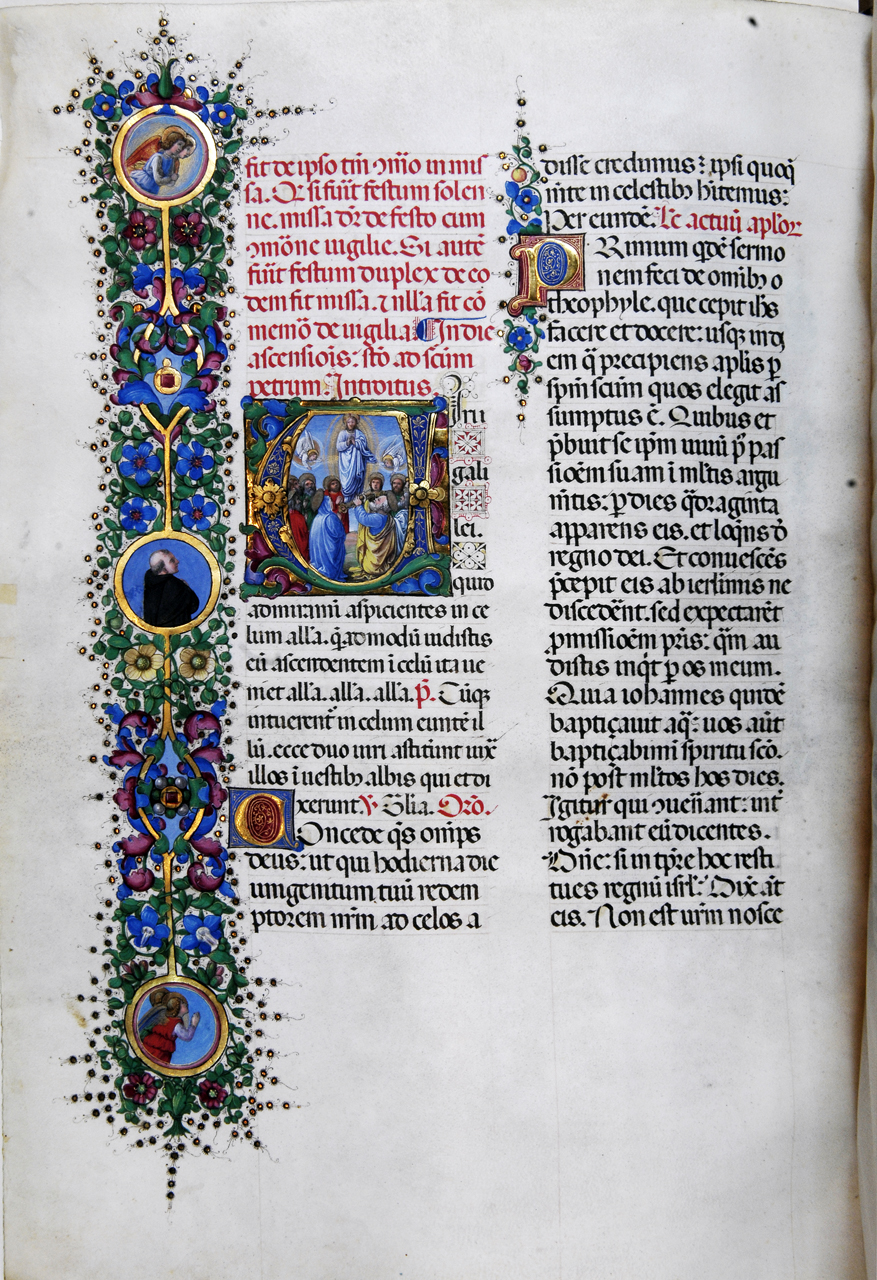 fit de ipso tm̄ ɔmō in mis
sa. Qr si fuīt festum solen
ne. missa dr̄ de festo cum
ɔmōne uigilie. Si autē
fuīt festum duplex de eo
dem fit missa. ⁊ nlła fit cō
memō de uigilia. In die
ascensiōis: stō ad scūm
petrum. Introitus.
V iri
gali
lei.
quid
admiramī aspicientes in ce
lum allā. q̄ad modū uidistis
eū ascendentem ī celū ita ue
niet allā. allā. allā. p̄. Cūqꝫ
intuerent̄ in celum euntē il
lū. ecce duo uiri astitūnt iuxͣ
illos ī uestibꝫ albis qui et di
xerunt. V Glīa. Orō.
Concede qs̄ omp̄s
deus: ut qui hodierna die
unigenitum tuū redem
ptorem nr̄m ad celos a
disse credimus: ipsi quoqꝫ
mēte in celestibꝫ hītemus:
Per eundē. Lc̄ actuū aplōꝝ
PRimum qdē sermo
nem feci de omībꝫ o
theophyle. que cepit ihs̄
facere et docere: usqꝫ in dı
em q̄ precipiens aplīs ꝑ
spm̄ scūm quos elegit as
sumptus ē. Quibus et
p̄buit se ipm̄ uiuū p̄ pas
sioēm suam ī mltīs argu
mētis: ꝑ dies qdraginta
apparens eis. et loqns̄ d̄
regno dei. Et conuescēs
p̄cepit eis ab ierlīmis ne
discedēnt. sed expectarēt
ꝓmissioēm prīs: qm̄ au
distis inqͥt ꝑ os meum.
Quia iohannes quidē
baptiçauit aqͣ: uos aūt
baptiçabimī spiritu scō.
nō post mltōs hos dies.
Igitur qui ɔuenāant: int̄
rogabant eū dicentes.
Dn̄e: si in tp̄re hoc resti
tues regnū isrl̄: Dixͥ aūt
eis. Non est urm̄ nosce